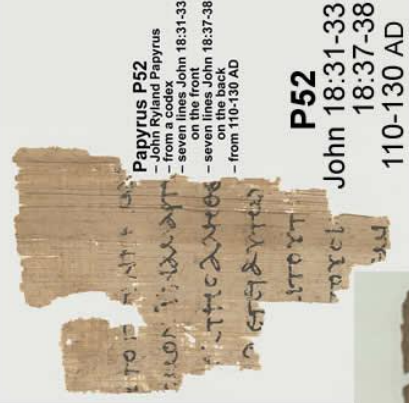 Papyrus P52
– John Ryland Papyrus
– from a codex
– seven lines John 18:31-33
on the front
– seven lines John 18:37-38
on the back
– from 110-130 AD
P52
John 18:31-33
18:37-38
110-130 AD
τησαληθε
ιτουτ
τουσι